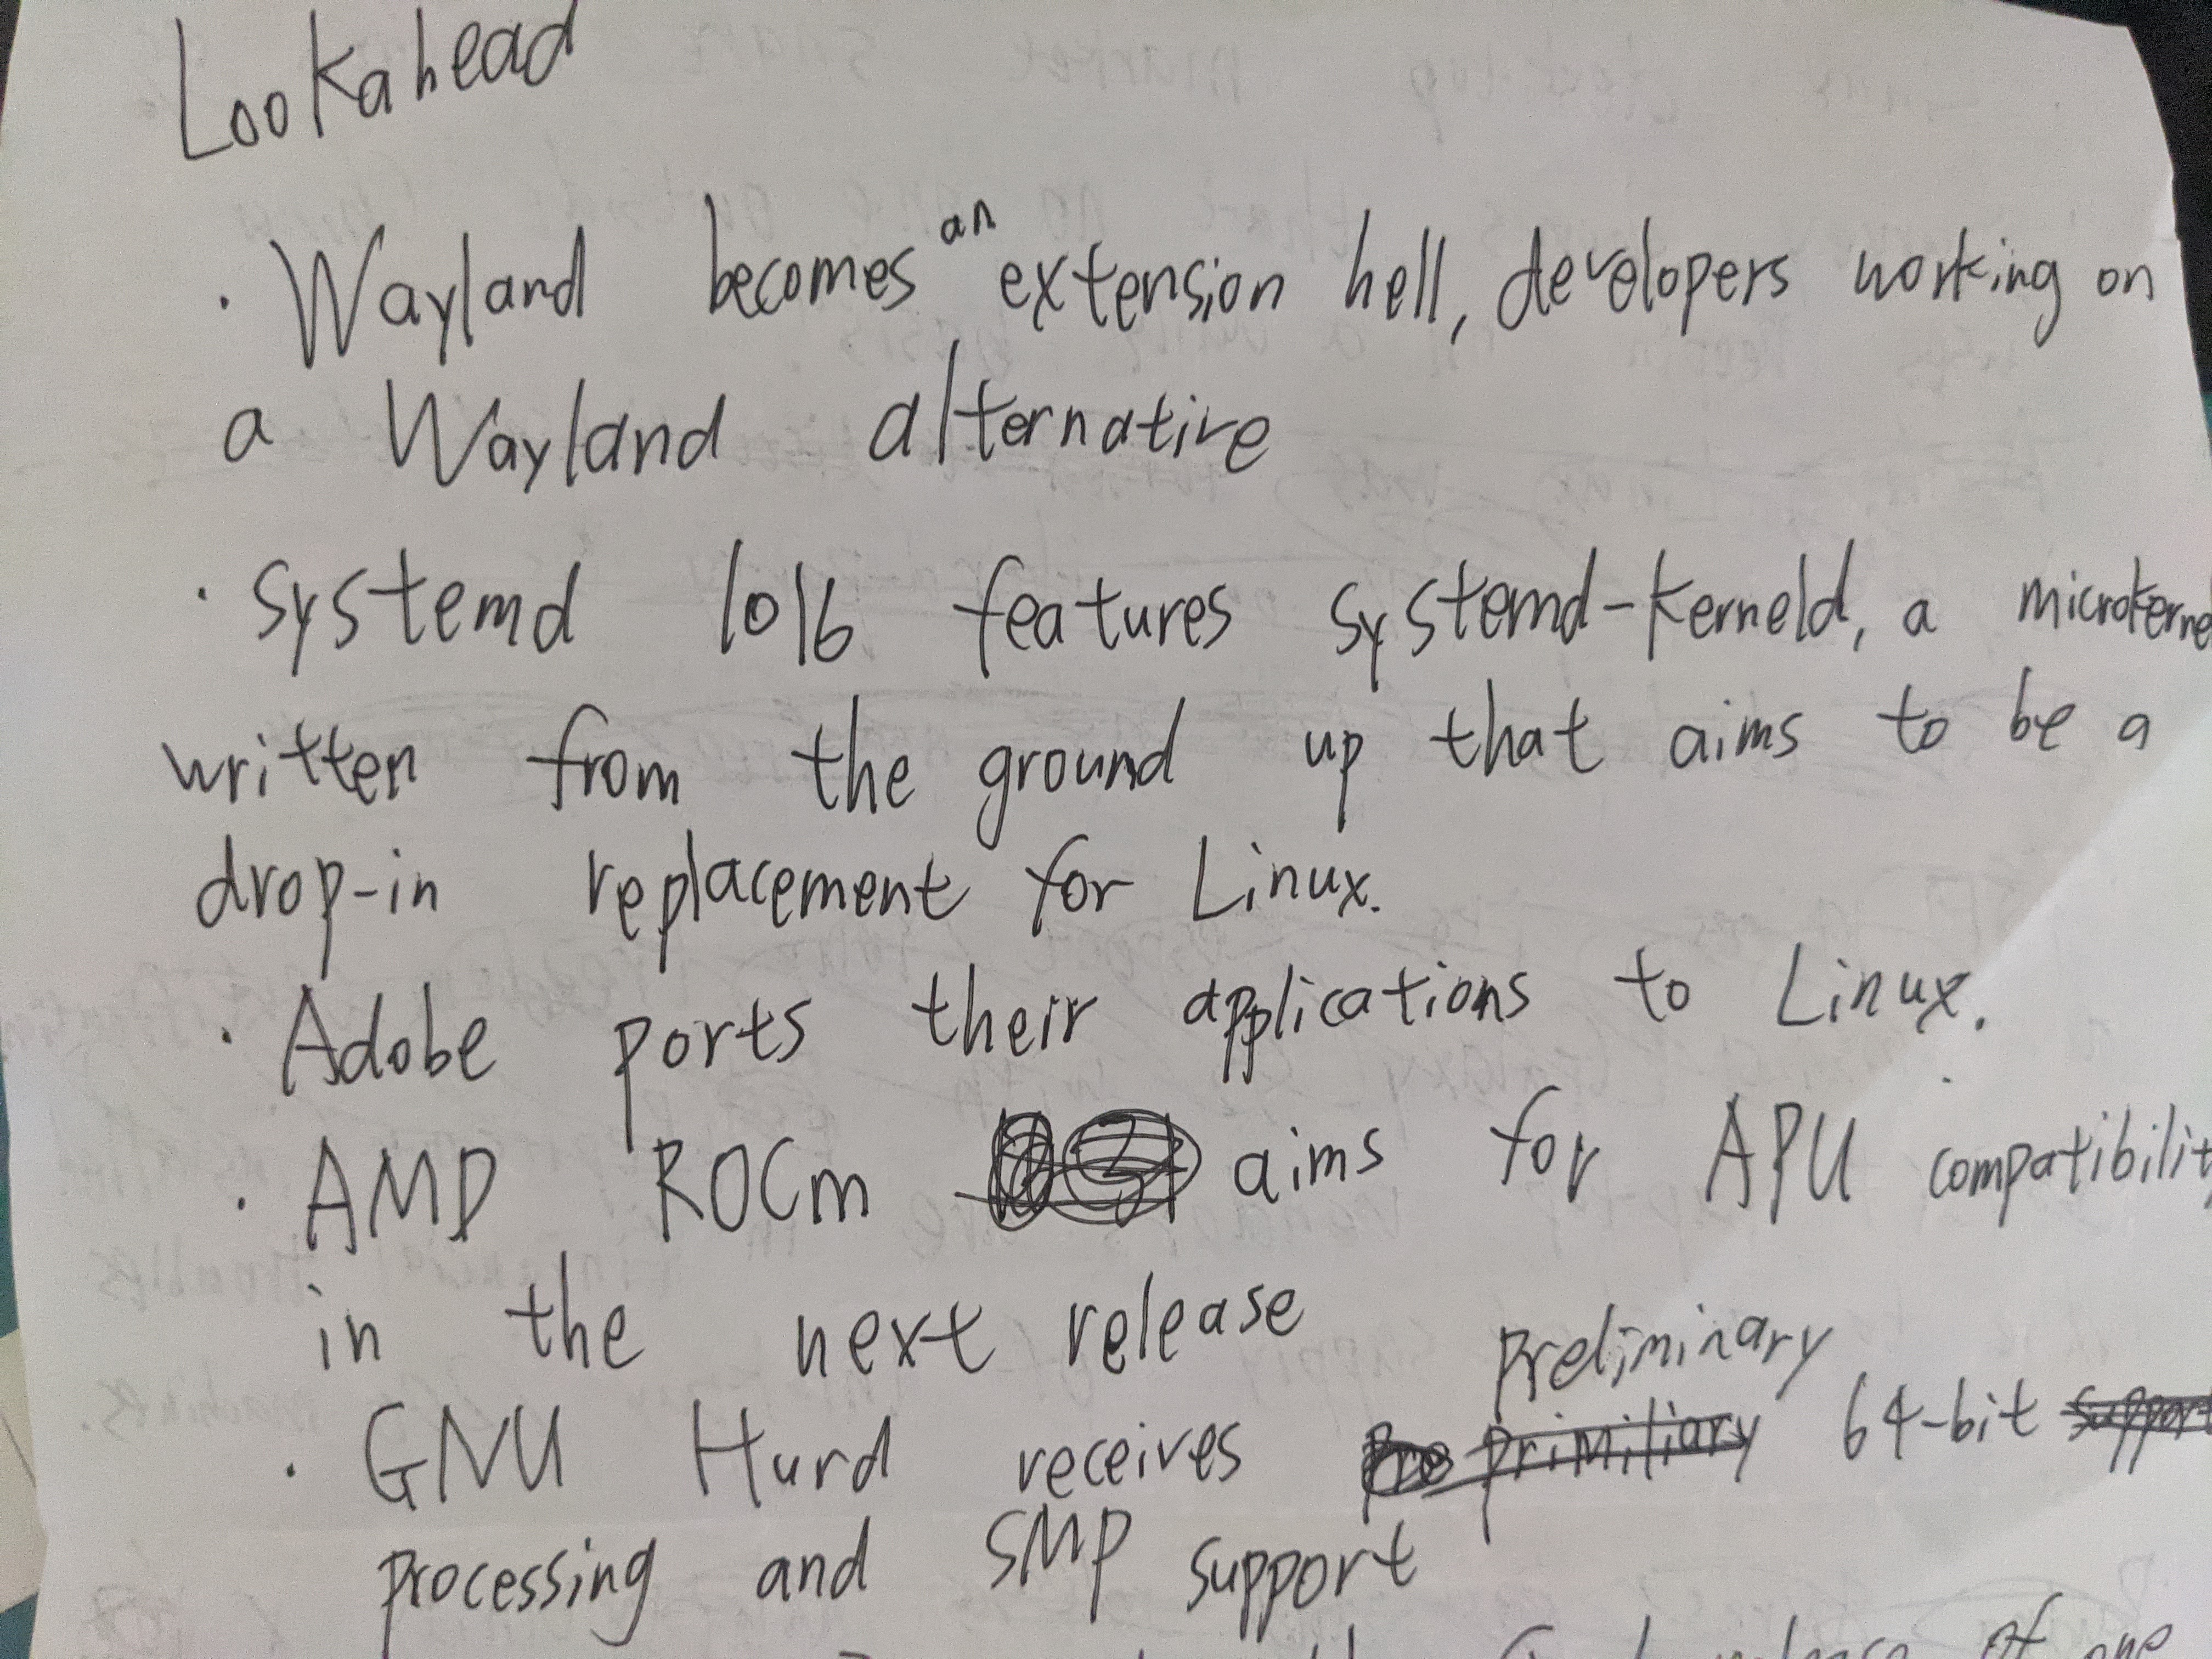 Lookahead
· Wayland becomes an extension hell, developers working on
a Wayland alternative
· Systemd 1016 features systemd-kerneld, a microkerne
written from the ground up that aims to be a
drop-in replacement for Linux.
· Adobe ports their applications to Linux.
· AMD ROCm aims for APU compatibilit
in the next release
· GNU Hurd receives preliminary 64-bit
processing and SMP support
of one